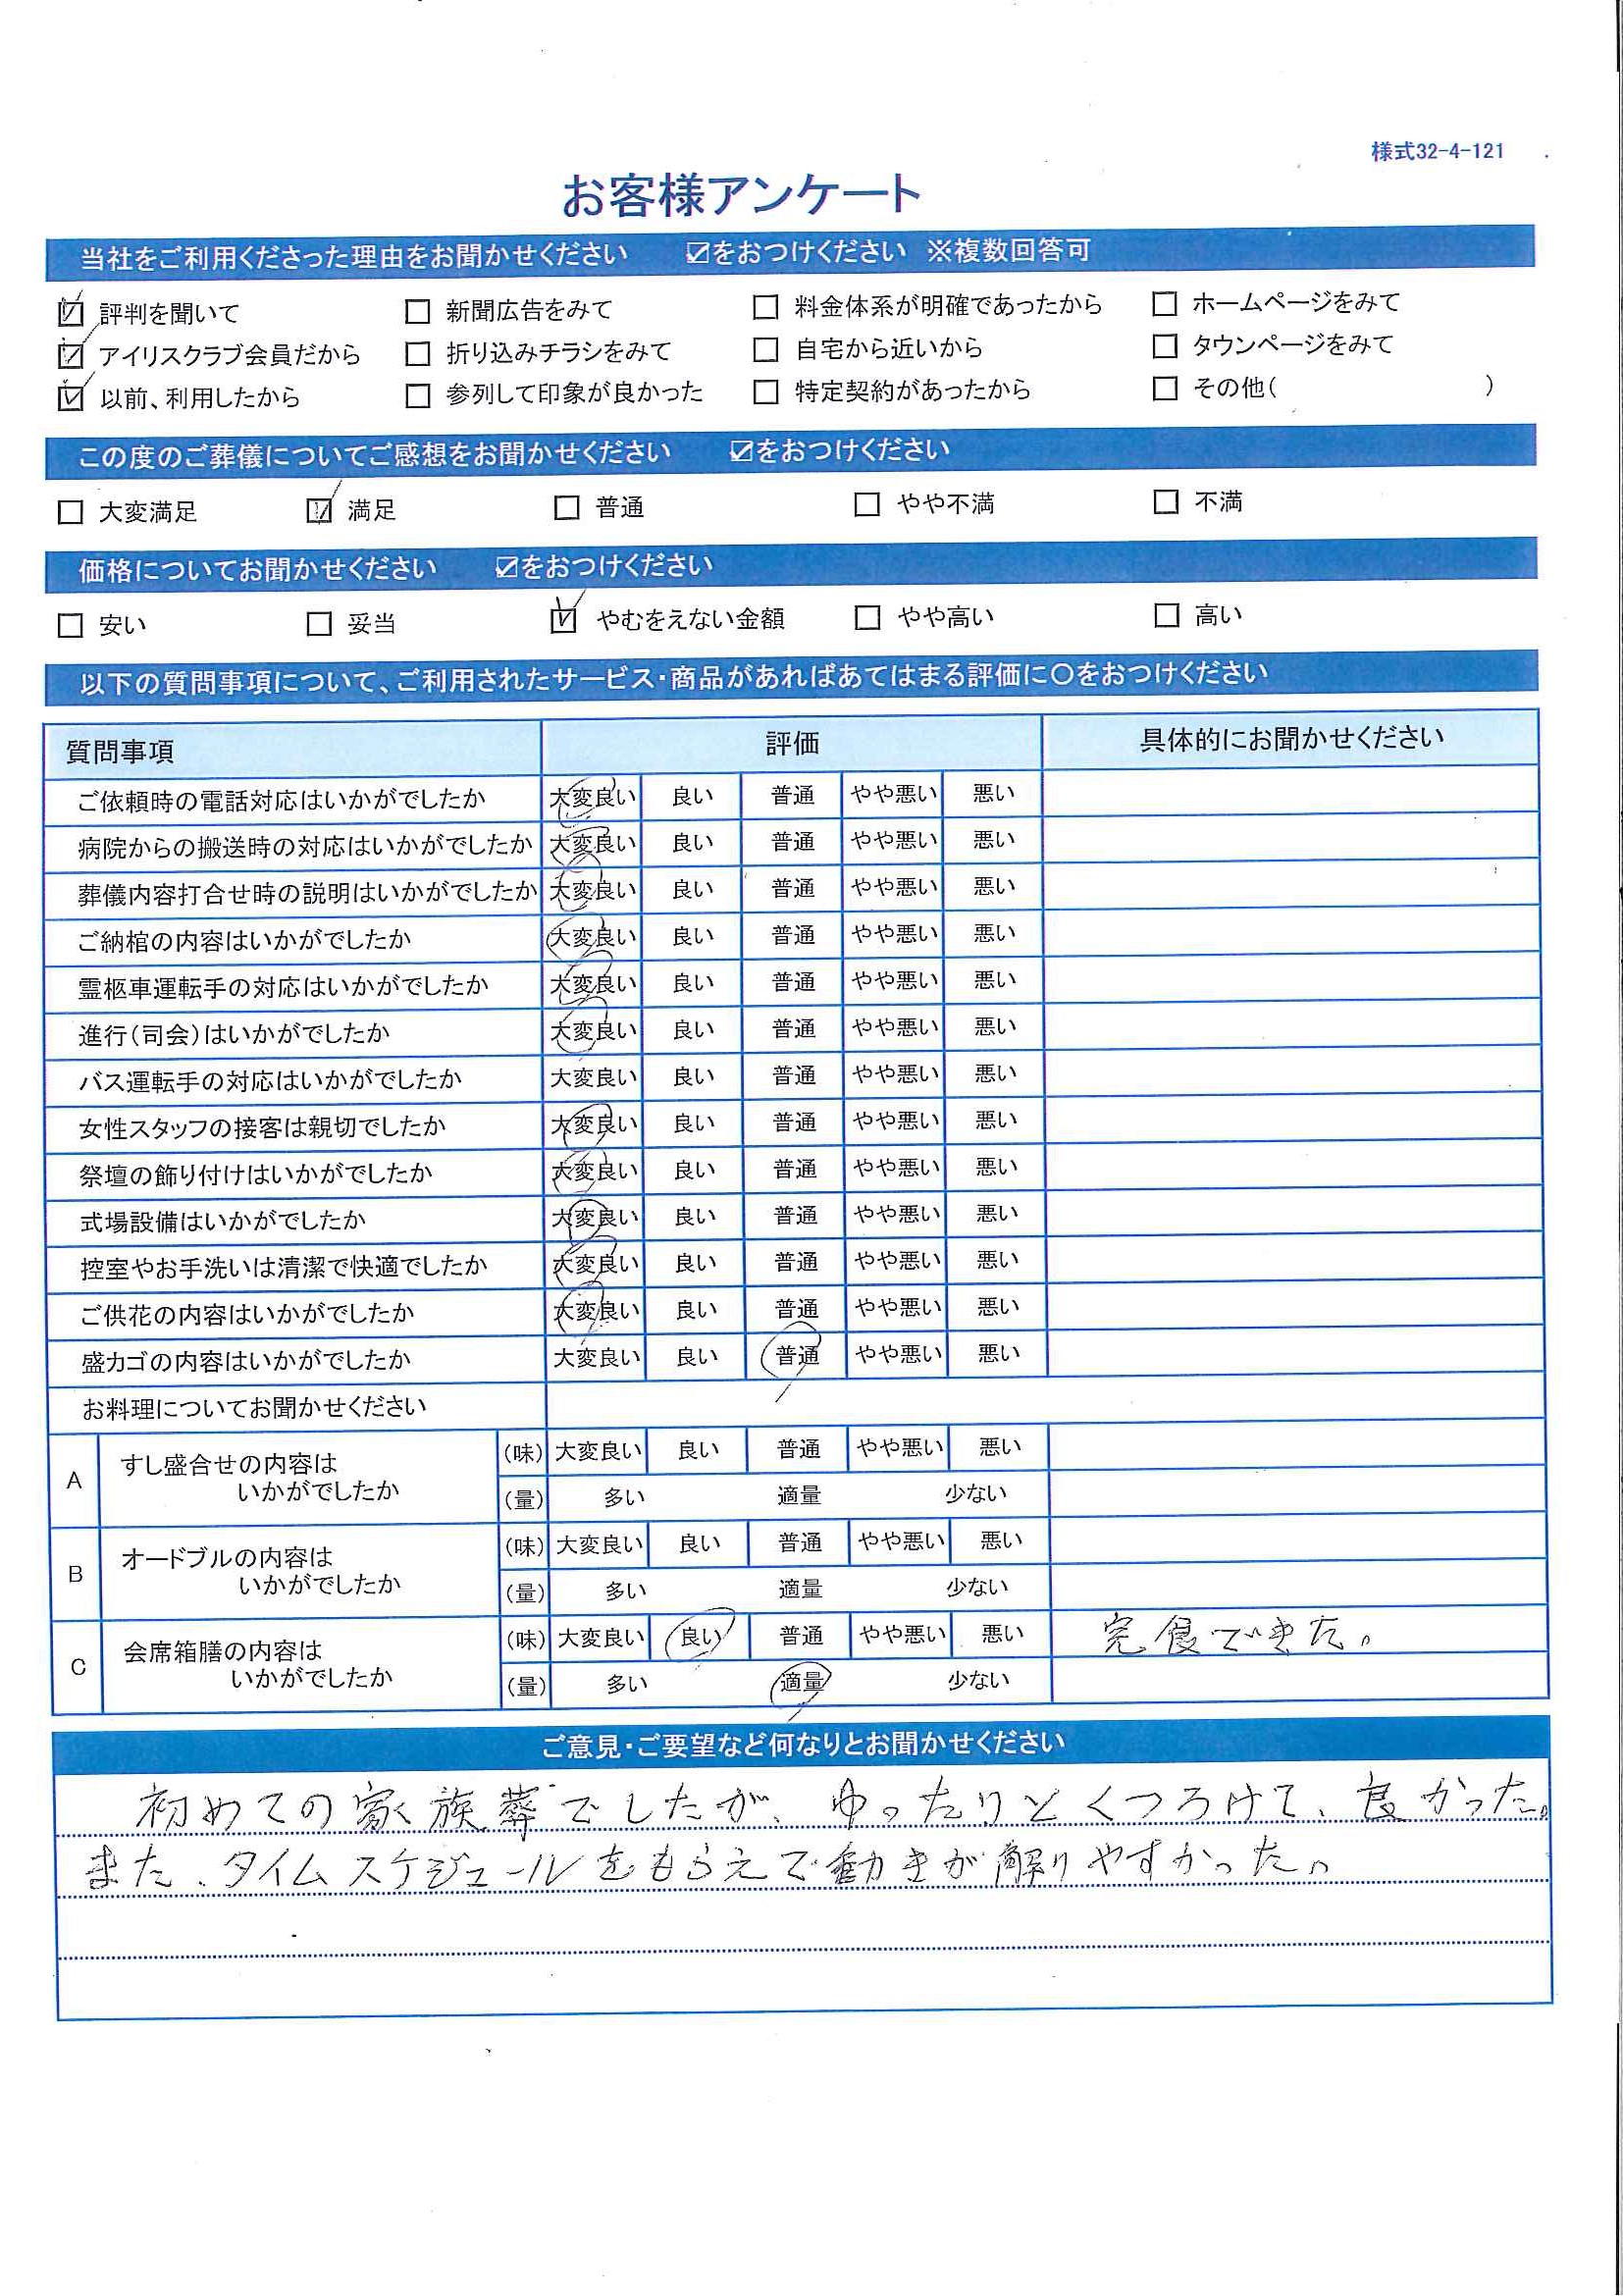 様式32-4-121
お客様アンケート
当社をご利用くださった理由をお聞かせください ☑をおつけください ※複数回答可
☑ 評判を聞いて □ 新聞広告をみて □ 料金体系が明確であったから □ ホームページをみて
☑ アイリスクラブ会員だから □ 折り込みチラシをみて □ 自宅から近いから □ タウンページをみて
☑ 以前、利用したから □ 参列して印象が良かった □ 特定契約があったから □ その他( )
この度のご葬儀についてご感想をお聞かせください ☑をおつけください
□ 大変満足 ☑ 満足 □ 普通 □ やや不満 □ 不満
価格についてお聞かせください ☑をおつけください
□ 安い □ 妥当 ☑ やむをえない金額 □ やや高い □ 高い
以下の質問事項について、ご利用されたサービス・商品があればあてはまる評価に○をおつけください
質問事項 評価 具体的にお聞かせください
ご依頼時の電話対応はいかがでしたか 大変良い 良い 普通 やや悪い 悪い
病院からの搬送時の対応はいかがでしたか 大変良い 良い 普通 やや悪い 悪い
葬儀内容打合せ時の説明はいかがでしたか 大変良い 良い 普通 やや悪い 悪い
ご納棺の内容はいかがでしたか 大変良い 良い 普通 やや悪い 悪い
霊柩車運転手の対応はいかがでしたか 大変良い 良い 普通 やや悪い 悪い
進行(司会)はいかがでしたか 大変良い 良い 普通 やや悪い 悪い
バス運転手の対応はいかがでしたか 大変良い 良い 普通 やや悪い 悪い
女性スタッフの接客は親切でしたか 大変良い 良い 普通 やや悪い 悪い
祭壇の飾り付けはいかがでしたか 大変良い 良い 普通 やや悪い 悪い
式場設備はいかがでしたか 大変良い 良い 普通 やや悪い 悪い
控室やお手洗いは清潔で快適でしたか 大変良い 良い 普通 やや悪い 悪い
ご供花の内容はいかがでしたか 大変良い 良い 普通 やや悪い 悪い
盛カゴの内容はいかがでしたか 大変良い 良い 普通 やや悪い 悪い
お料理についてお聞かせください
A すし盛合せの内容は (味) 大変良い 良い 普通 やや悪い 悪い
いかがでしたか (量) 多い 適量 少ない
B オードブルの内容は (味) 大変良い 良い 普通 やや悪い 悪い
いかがでしたか (量) 多い 適量 少ない
C 会席箱膳の内容は (味) 大変良い 良い 普通 やや悪い 悪い 完食できた。
いかがでしたか (量) 多い 適量 少ない
ご意見・ご要望など何なりとお聞かせください
初めての家族葬でしたが、ゆったりとくつろけて、良かった。
また、タイムスケジュールをもらえて動きが解りやすかった。